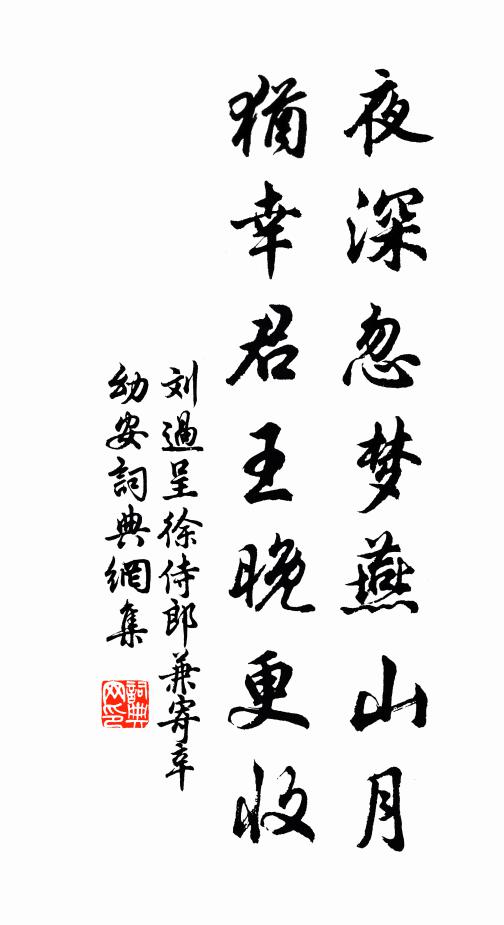 夜深忽梦燕山月
猶幸君王晚更收
刘過呈徐侍郎兼寄辛
幼安詞典網集
詞典
网印